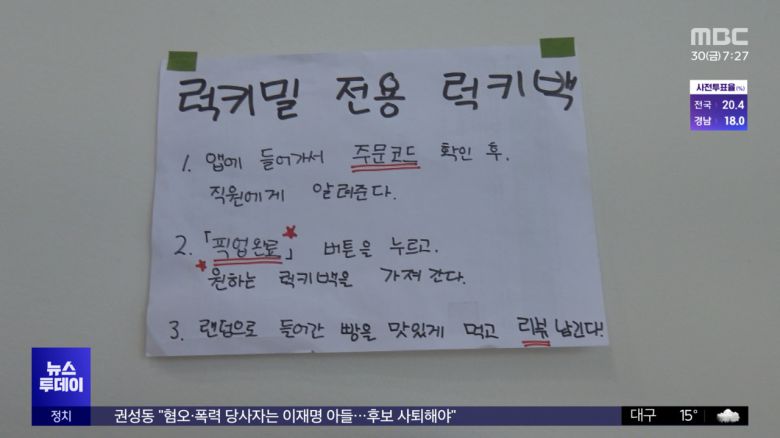 MBC
30(금) 7:27
사전투표율(%)
전국 20.4
경남 18.0
럭키밀 전용 럭키백
1. 앱에 들어가서 주문코드 확인 후.
직원에게 알려준다.
2. 「픽업완료」 버튼을 누르고.
원하는 럭키백을 가져간다.
3. 랜덤으로 들어간 빵을 맛있게 먹고 리뷰 남긴다!
뉴스
투데이
정치 권성동 "혐오·폭력 당사자는 이재명 아들…후보 사퇴해야" 대구 15°